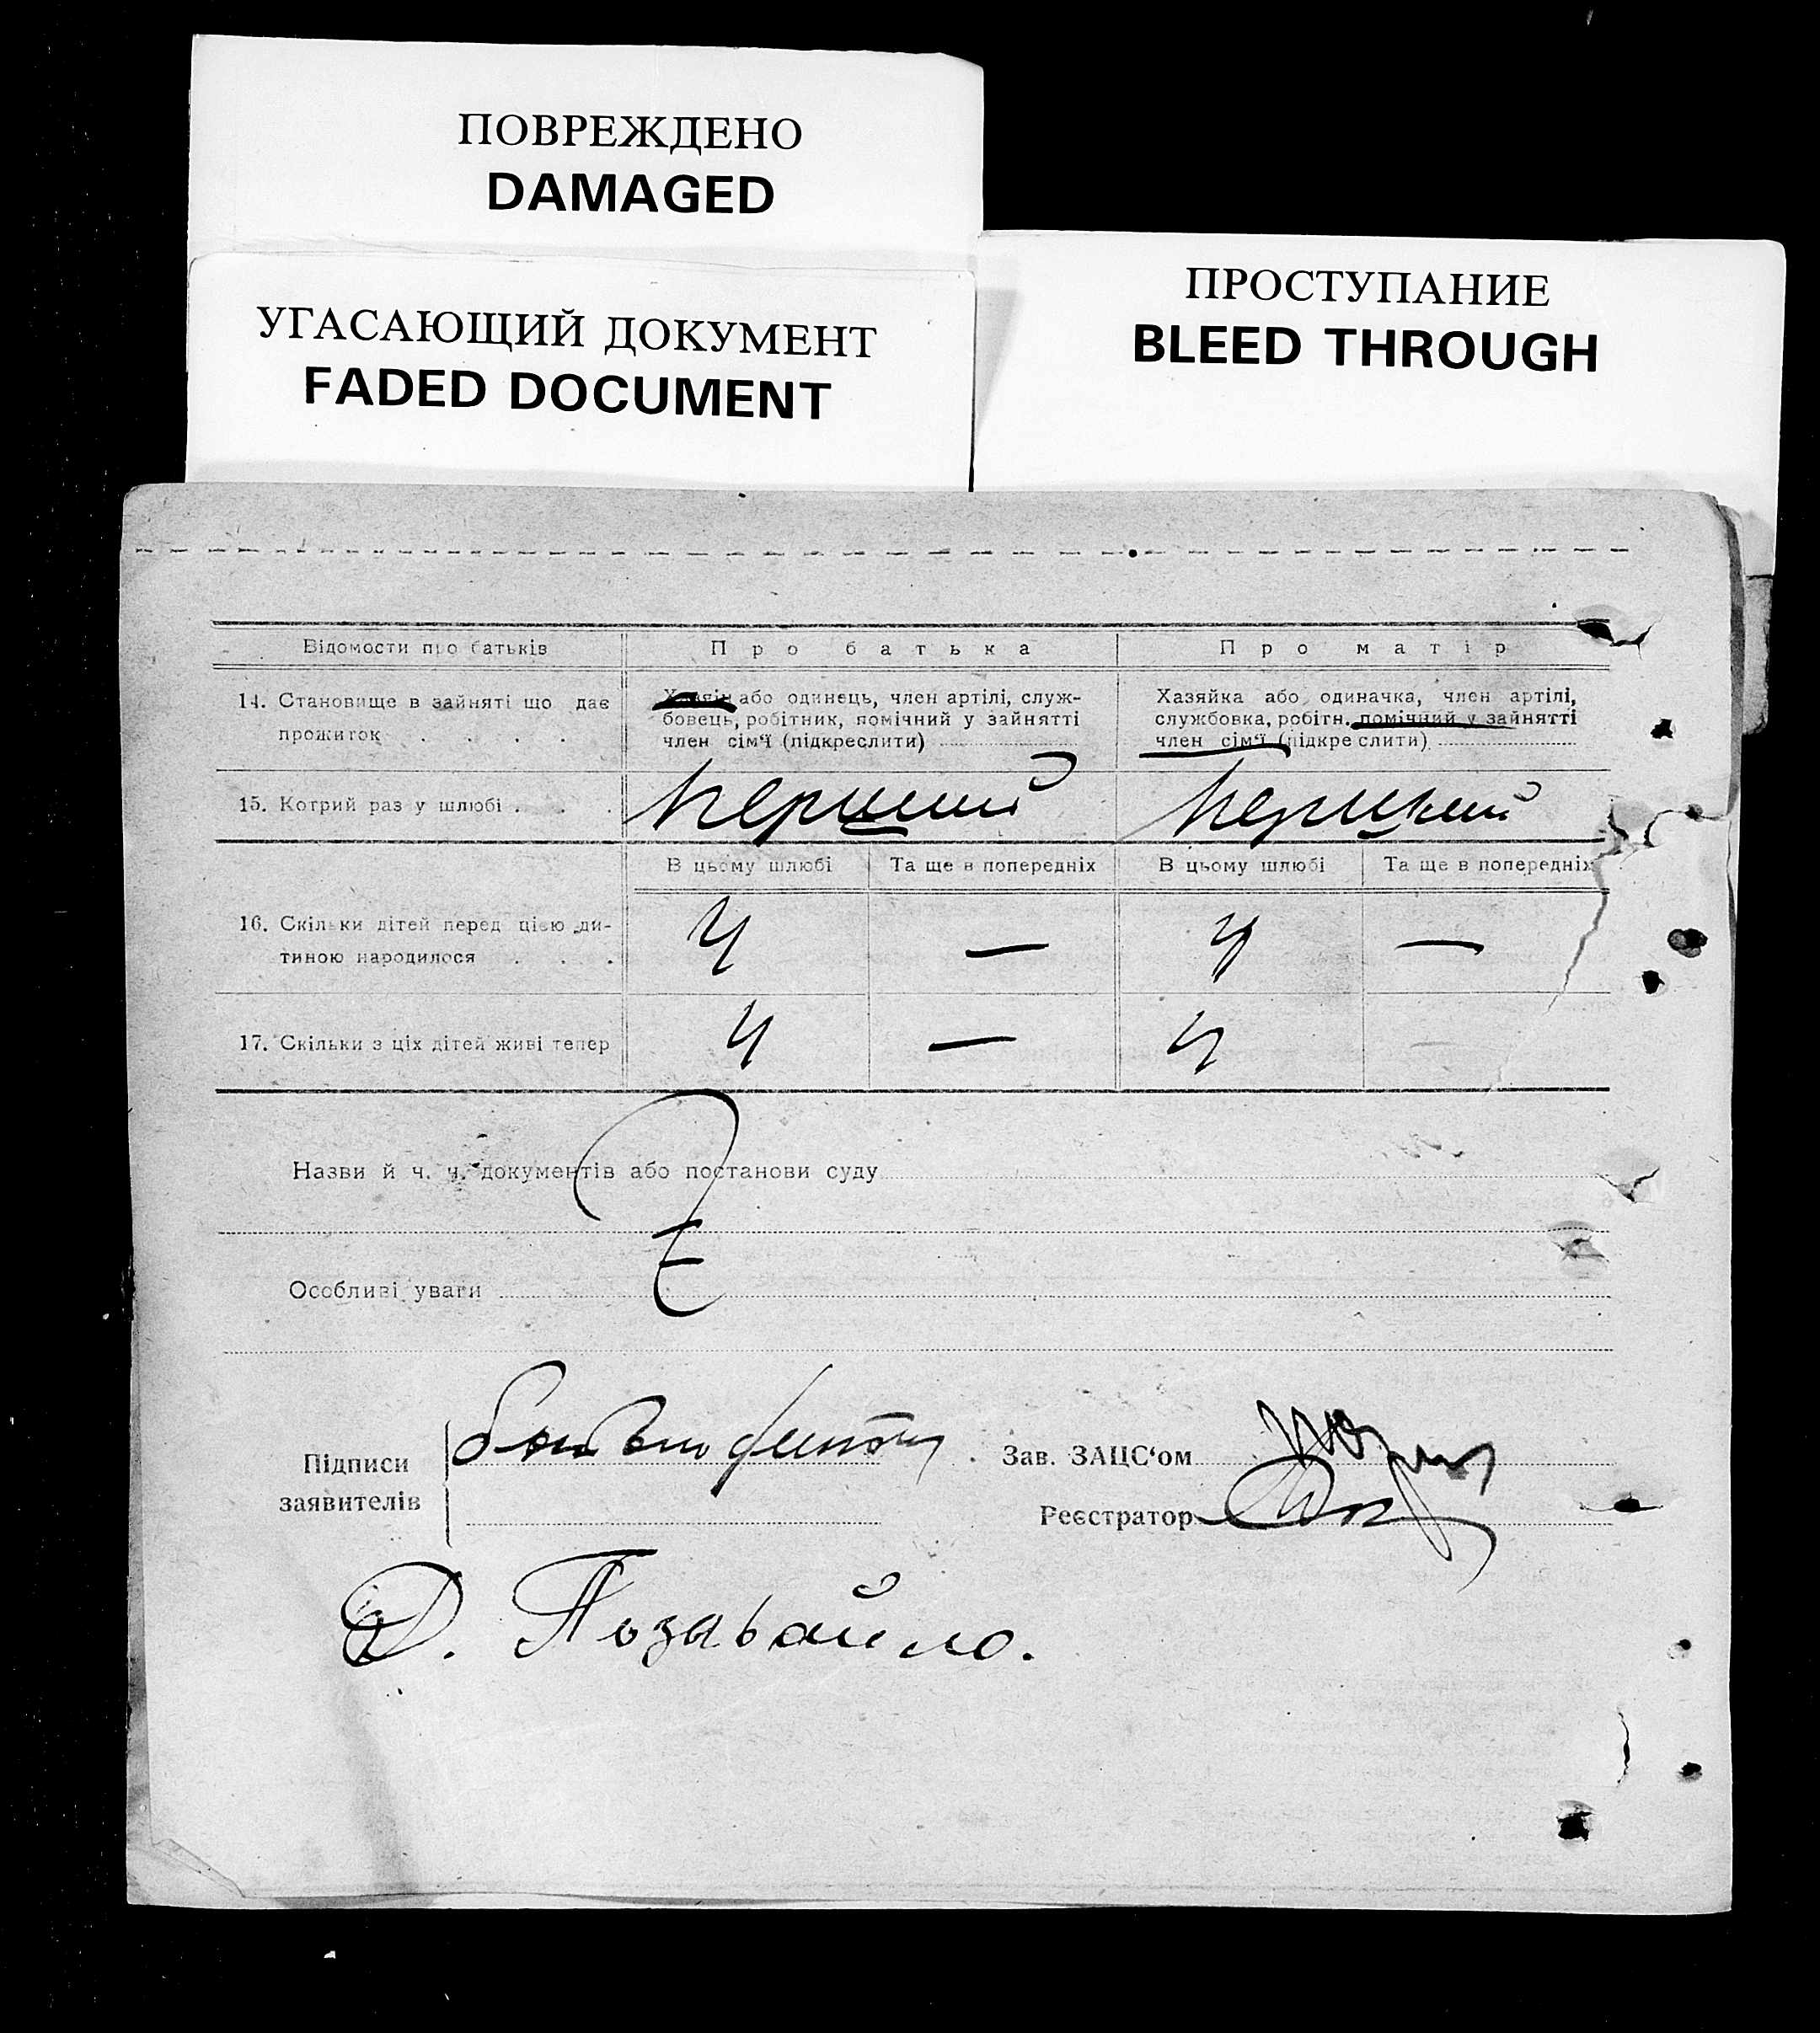 ПОВРЕЖДЕНО
DAMAGED
УГАСАЮЩИЙ ДОКУМЕНТ
FADED DOCUMENT
ПРОСТУПАНИЕ
BLEED THROUGH
Відомости про батьків
Про батька
Про матір
14. Становище в зайняті що дає
прожиток . . . .
Хазяїн або одинець, член артілі, служ-
бовець, робітник, помічний у зайнятті
член сім'ї (підкреслити)
Хазяйка або одиначка, член артілі,
службовка, робітн. помічний у зайнятті
член сім'ї (підкреслити)
15. Котрий раз у шлюбі . . .
перший
перший
В цьому шлюбі
Та ще в попередніх
В цьому шлюбі
Та ще в попередніх
16. Скільки дітей перед цією ди-
тиною народилося . . .
4
—
4
—
17. Скільки з ціх дітей живі тепер
4
—
4
—
Назви й ч. ч. документів або постанови суду
Особливі уваги
Підписи
заявителів
Зав. ЗАЦС'ом
Реєстратор
Д. Позывайло.